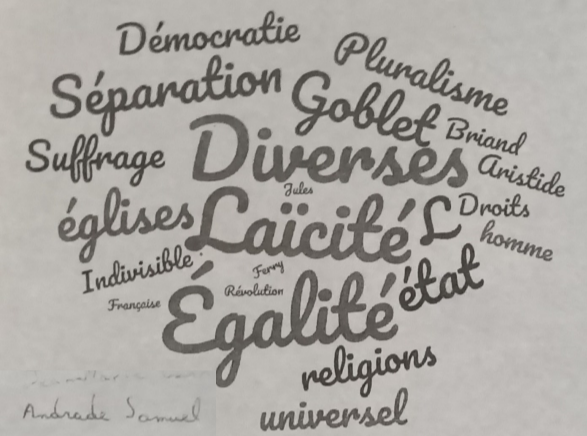 Démocratie
Pluralisme
Séparation
Goblet
Briand
Suffrage
Diverses
Aristide
Jules
églises
Laïcité
L
Droits
homme
Indivisible
Ferry
Française
Révolution
Égalité
état
religions
universel
Andrade Samuel